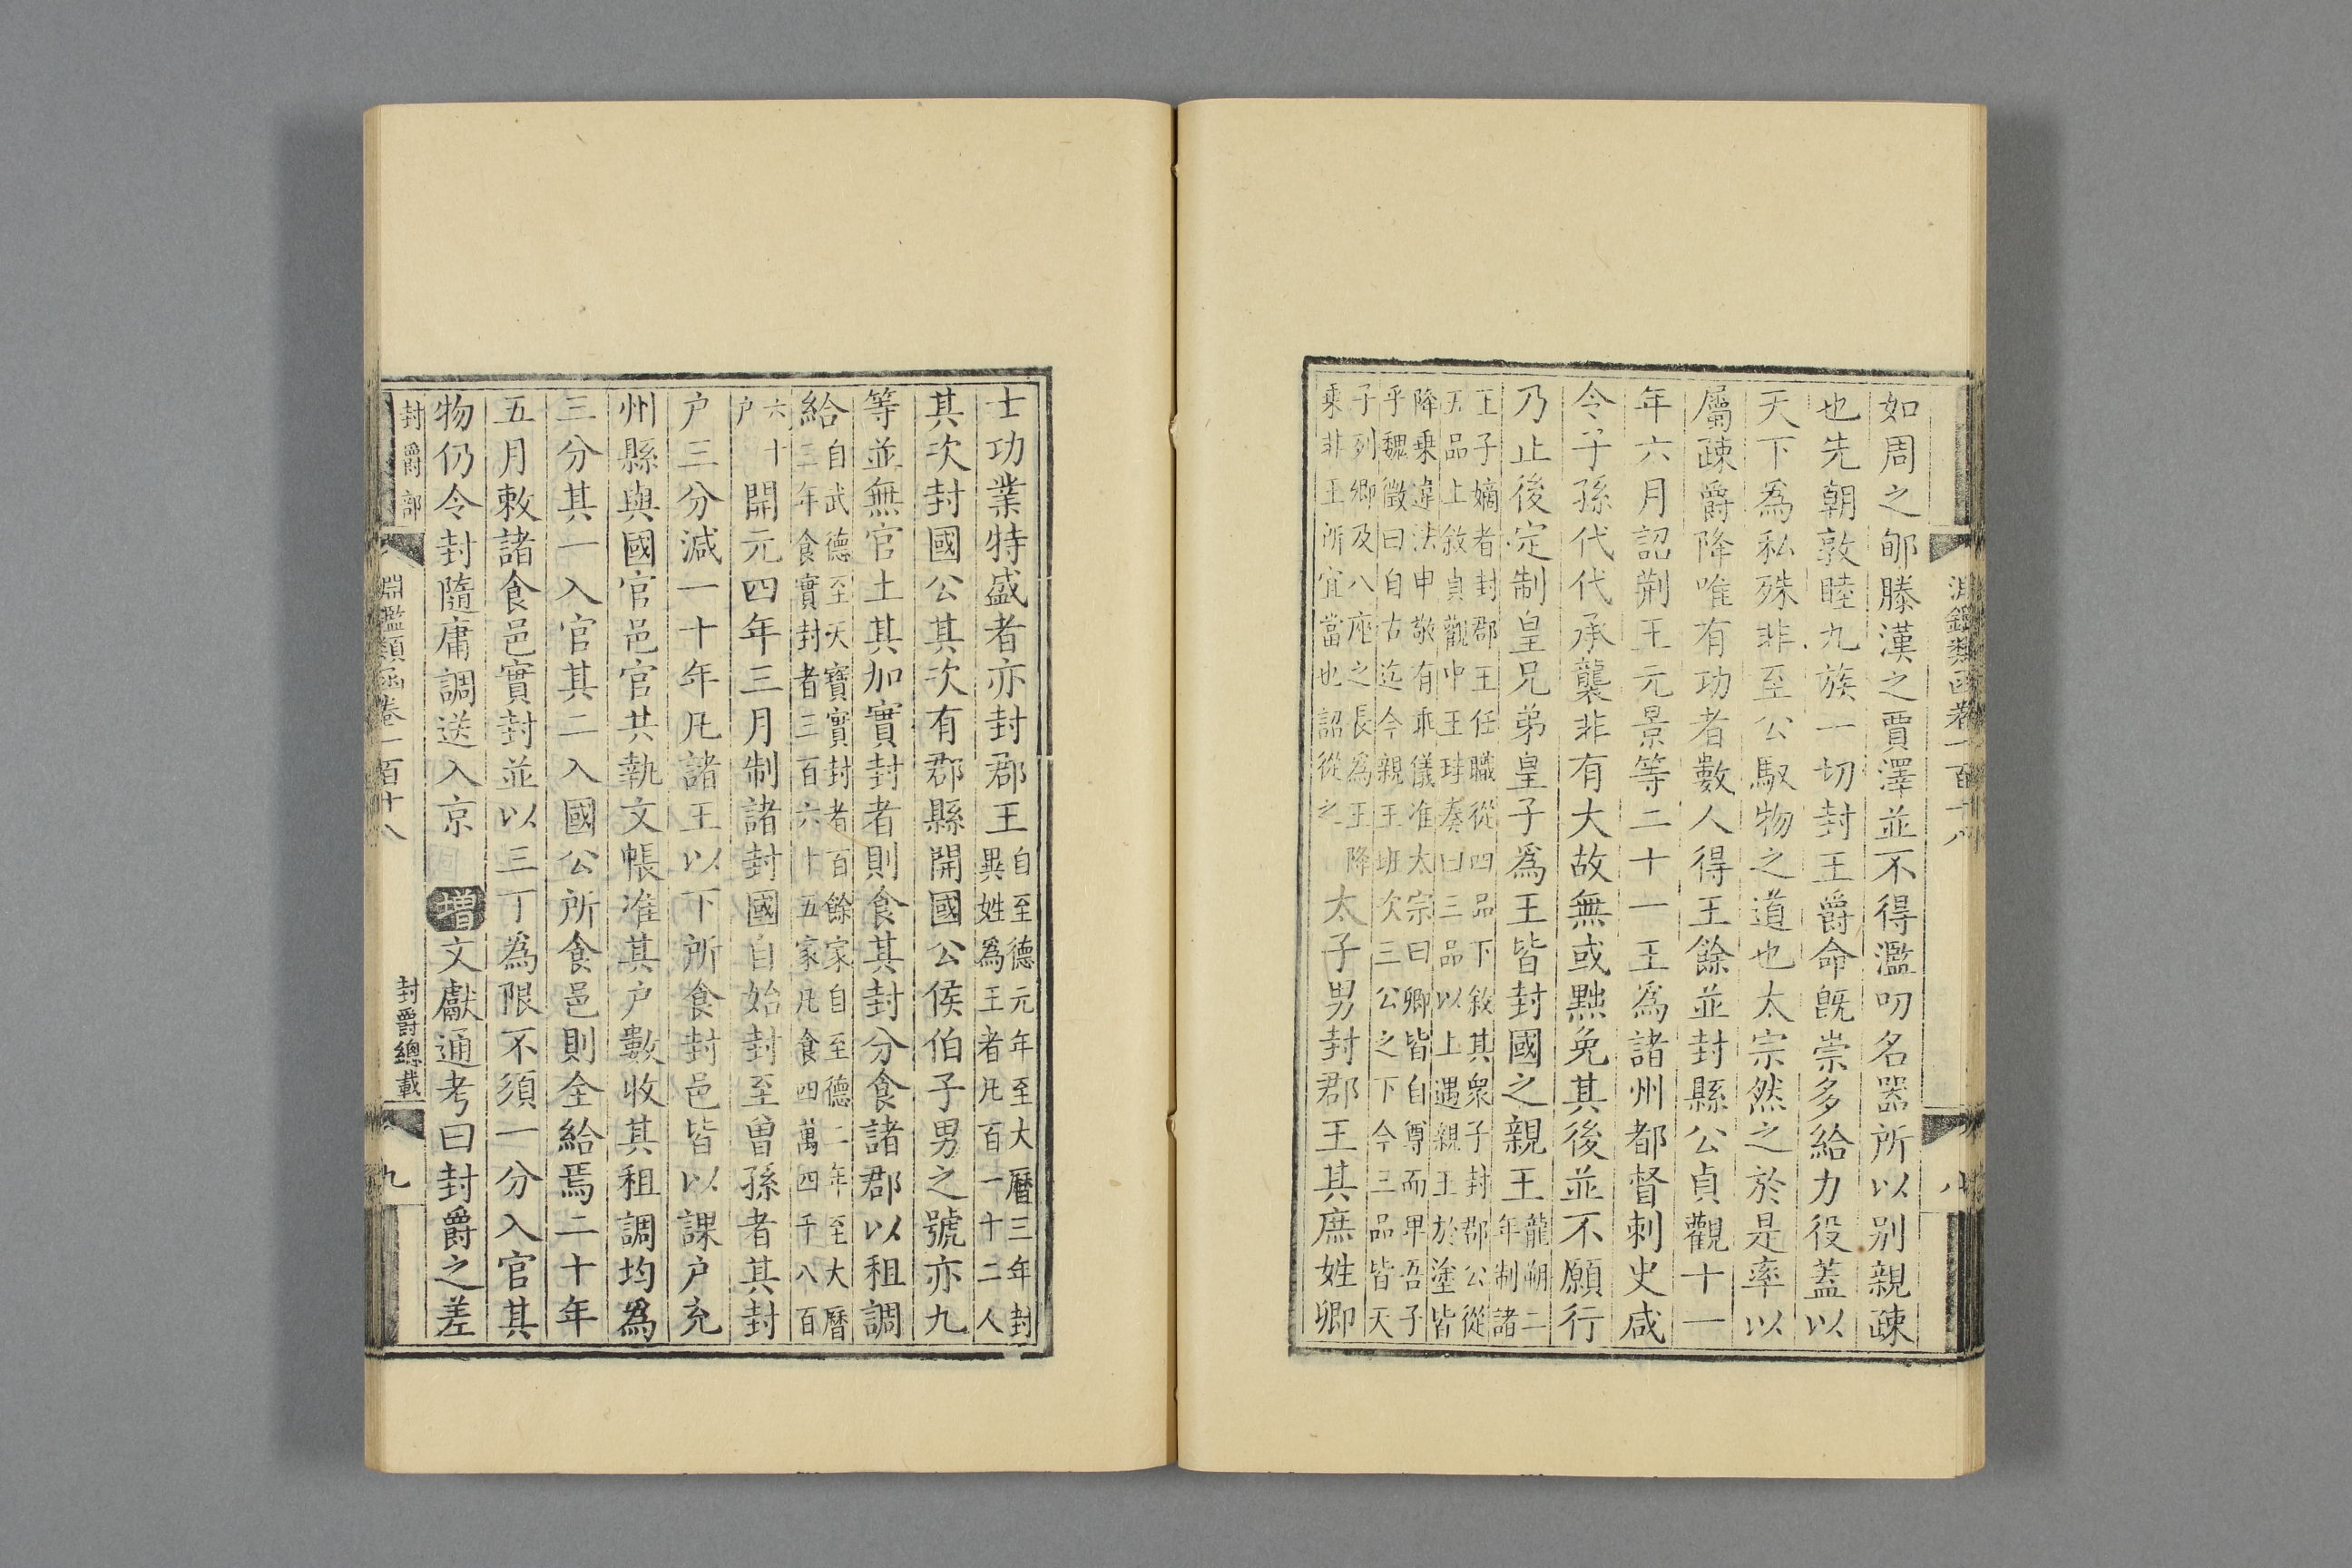 淵鑑類函卷一百十八 八
如周之郇滕漢之賈澤並不得濫叨名器所以別親疎
也先朝敦睦九族一切封王爵命旣崇多給力役蓋以
天下爲私殊非至公馭物之道也太宗然之於是率以
屬疎爵降唯有功者數人得王餘並封縣公貞觀十一
年六月詔荆王元景等二十一王爲諸州都督刺史咸
令子孫代代承襲非有大故無或黜免其後並不願行
乃止後定制皇兄弟皇子爲王皆封國之親王
龍朔二
年制諸
王子嫡者封郡王任職從四品下敘其衆子封郡公從
五品上敘貞觀中王珪奏曰三品以上遇親王於塗皆
降乗違法申敬有乖儀准太宗曰卿皆自尊而卑吾子
乎魏徵曰自古迄今親王班次三公之下今三品皆天
子列卿及八座之長爲王降
乗非王所宜當也詔從之
太子男封郡王其庶姓卿
士功業特盛者亦封郡王
自至德元年至大曆三年封
異姓爲王者凡百一十二人
其次封國公其次有郡縣開國公侯伯子男之號亦九
等並無官土其加實封者則食其封分食諸郡以租調
給
自武德至天寶實封者百餘家自至德二年至大曆
三年食實封者三百六十五家凡食四萬四千八百
六十
户
開元四年三月制諸封國自始封至曾孫者其封
户三分減一十年凡諸王以下所食封邑皆以課户充
州縣與國官邑官共執文帳准其户數收其租調均爲
三分其一入官其二入國公所食邑則全給焉二十年
五月敕諸食邑實封並以三丁為限不須一分入官其
物仍令封隨庸調送入京 增文獻通考曰封爵之差
封爵部 淵鑑類函卷一百十八 封爵總載 九